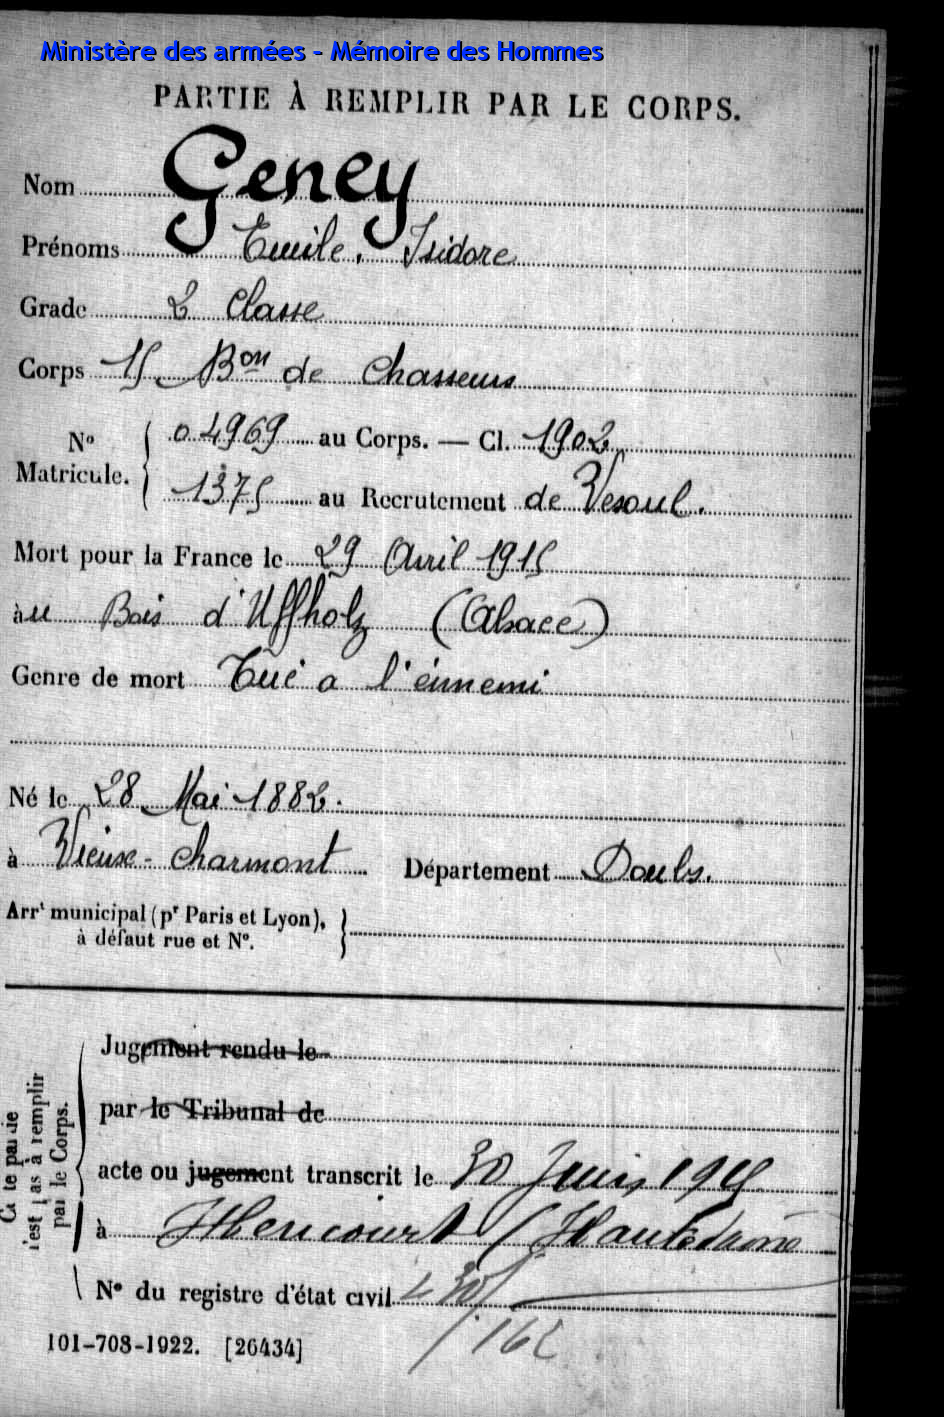 Ministère des armées - Mémoire des Hommes
PARTIE À REMPLIR PAR LE CORPS.
Nom Geney
Prénoms Emile, Isidore
Grade 2 Classe
Corps 15 Bon de Chasseurs
No Matricule. { 04969 au Corps. — Cl. 1902
1375 au Recrutement de Vesoul.
Mort pour la France le 29 Avril 1915
àu Bois d'Uffholz (Alsace)
Genre de mort Tué a l'énnemi
Né le 28 Mai 1882.
à Vieux-Charmont Département Doubs.
Arrt municipal (pr Paris et Lyon),
à défaut rue et No.
Cette partie
n'est pas à remplir
par le Corps.
Jugement rendu le
par le Tribunal de
acte ou jugement transcrit le 30 Juin 1915
à Héricourt (Haute Saône
No du registre d'état civil
101-708-1922. [26434]